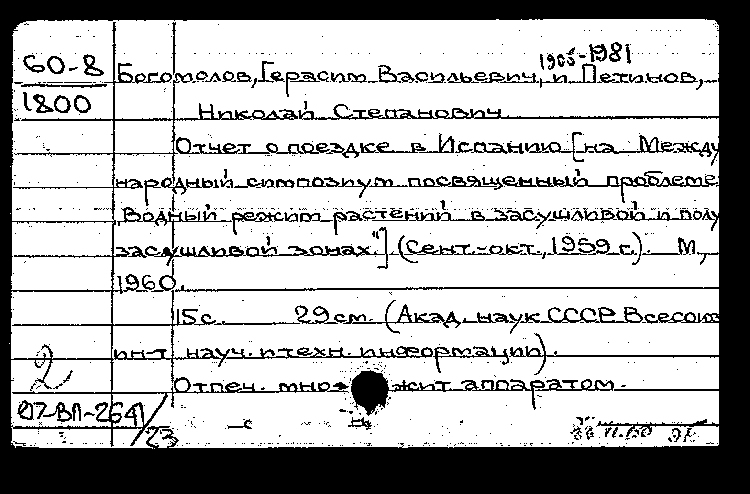 60-8
1800
1905-1981
Богомолов, Герасим Васильевич, и Петинов,
Николай Степанович
Отчет о поездке в Испанию [на Между
народный симпозиум посвященный проблеме
"Водный режим растений в засушливой и полу
засушливой зонах"] (Сент.-окт., 1959 г.). М.,
1960.
15 с. 29 см. (Акад. наук СССР. Всесоюз
ин-т науч. и техн. информации).
2
Отпеч. множит аппаратом.
23